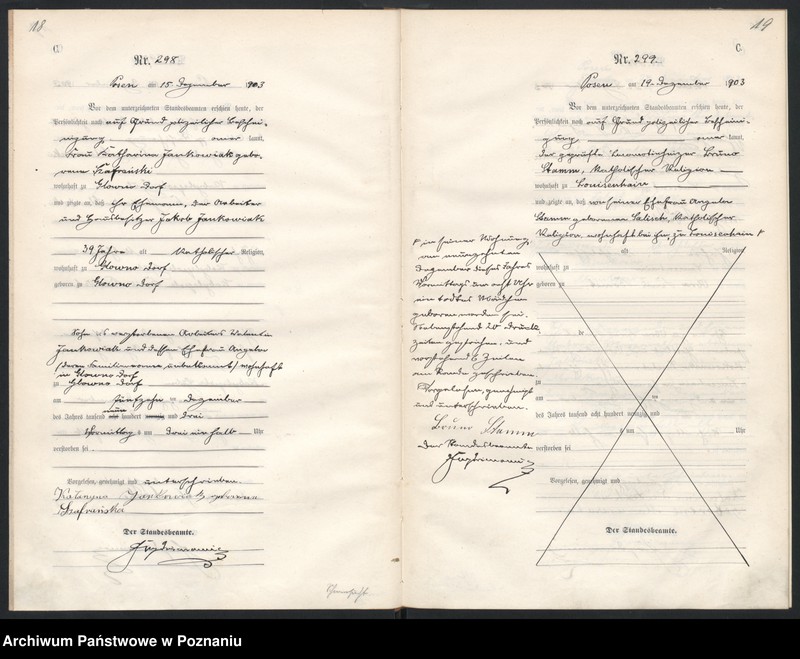 18
C.
Nr. 298
Posen am 15 Dezember 1903
Vor dem unterzeichneten Standesbeamten erschien heute, der
Persönlichkeit nach auf Grund polizeilicher Beschei-
nigung kannt,
Frau Katharina Jankowiak gebo-
rene Szafranski
wohnhaft in Glowno Dorf
und zeigte an, daß ihr Ehemann, der Arbeiter
und Hausbesitzer Jakob Jankowiak
39 Jahre alt, katholischer Religion,
wohnhaft zu Glowno Dorf
geboren zu Glowno Dorf
Sohn des verstorbenen Arbeiters Valentin
Jankowiak und dessen Ehefrau Angela
(deren Familienname unbekannt) wohnhaft
in Glowno Dorf
zu Glowno Dorf
am fünfzehn ten Dezember
des Jahres tausend neun hundert und drei
Vormittag s um drei ein halb Uhr
verstorben sei.
Vorgelesen, genehmigt und unterschrieben.
Katarzyna Jankowiak
Szafrańska
Der Standesbeamte.
19
C.
Nr. 299.
Posen am 19 Dezember 1903
Vor dem unterzeichneten Standesbeamten erschien heute, der
Persönlichkeit nach auf Grund polizeilicher Bescheini-
gung kannt,
der geprüfte Bruno
Stamm, katholischer Religion
wohnhaft zu Louisenhain
und zeigte an, daß von seiner Ehefrau Angela
Stamm geborenen katholischer
Religion, wohnhaft bei ihm, zu Louisenhain
in seiner Wohnung,
am neunzehnten
Dezember dieses Jahres
Vormittags um acht Uhr
ein todtes Mädchen
geboren worden sei.
Vorstehend 20 Druck-
zeilen gestrichen, und
vorstehend 6 Zeilen
am Rande geschrieben.
Vorgelesen, genehmigt
und unterschrieben.
Bruno Stamm
Der Standesbeamte
alt, Religion,
wohnhaft zu
geboren zu
de
zu
am ten
des Jahres tausend acht hundert neunzig und
um Uhr
verstorben sei
Vorgelesen, genehmigt und
Der Standesbeamte.
Archiwum Państwowe w Poznaniu